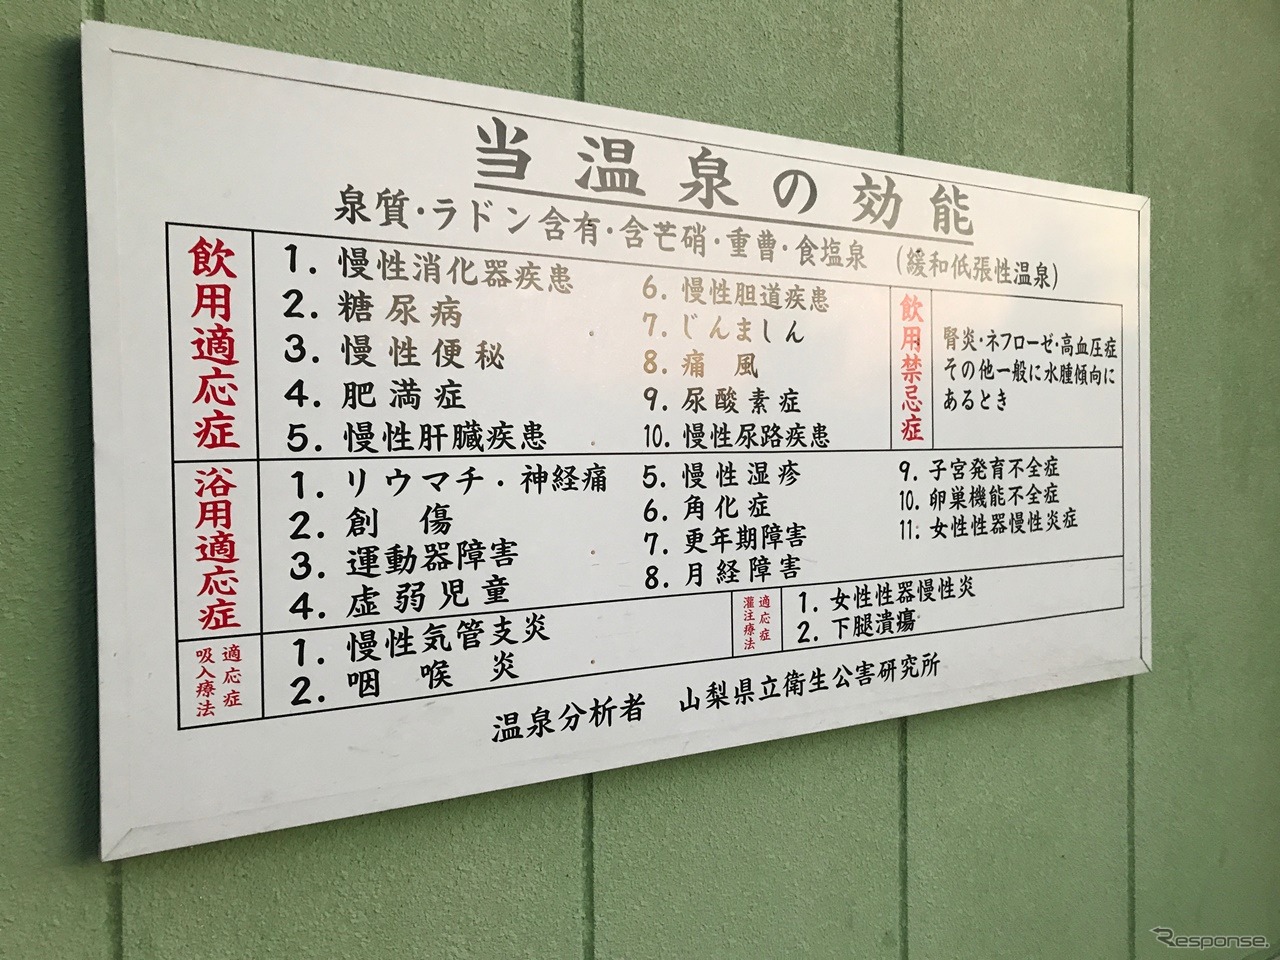 当温泉の効能
泉質・ラドン含有・含芒硝・重曹・食塩泉 （緩和低張性温泉）
飲用適応症
1. 慢性消化器疾患
2. 糖尿病
3. 慢性便秘
4. 肥満症
5. 慢性肝臓疾患
6. 慢性胆道疾患
7. じんましん
8. 痛風
9. 尿酸素症
10. 慢性尿路疾患
飲用禁忌症
腎炎・ネフローゼ・高血圧症
その他一般に水腫傾向に
あるとき
浴用適応症
1. リウマチ・神経痛
2. 創傷
3. 運動器障害
4. 虚弱児童
5. 慢性湿疹
6. 角化症
7. 更年期障害
8. 月経障害
9. 子宮発育不全症
10. 卵巣機能不全症
11. 女性性器慢性炎症
吸入療法
適応症
1. 慢性気管支炎
2. 咽喉炎
灌注療法
適応症
1. 女性性器慢性炎
2. 下腿潰瘍
温泉分析者 山梨県立衛生公害研究所
Response.